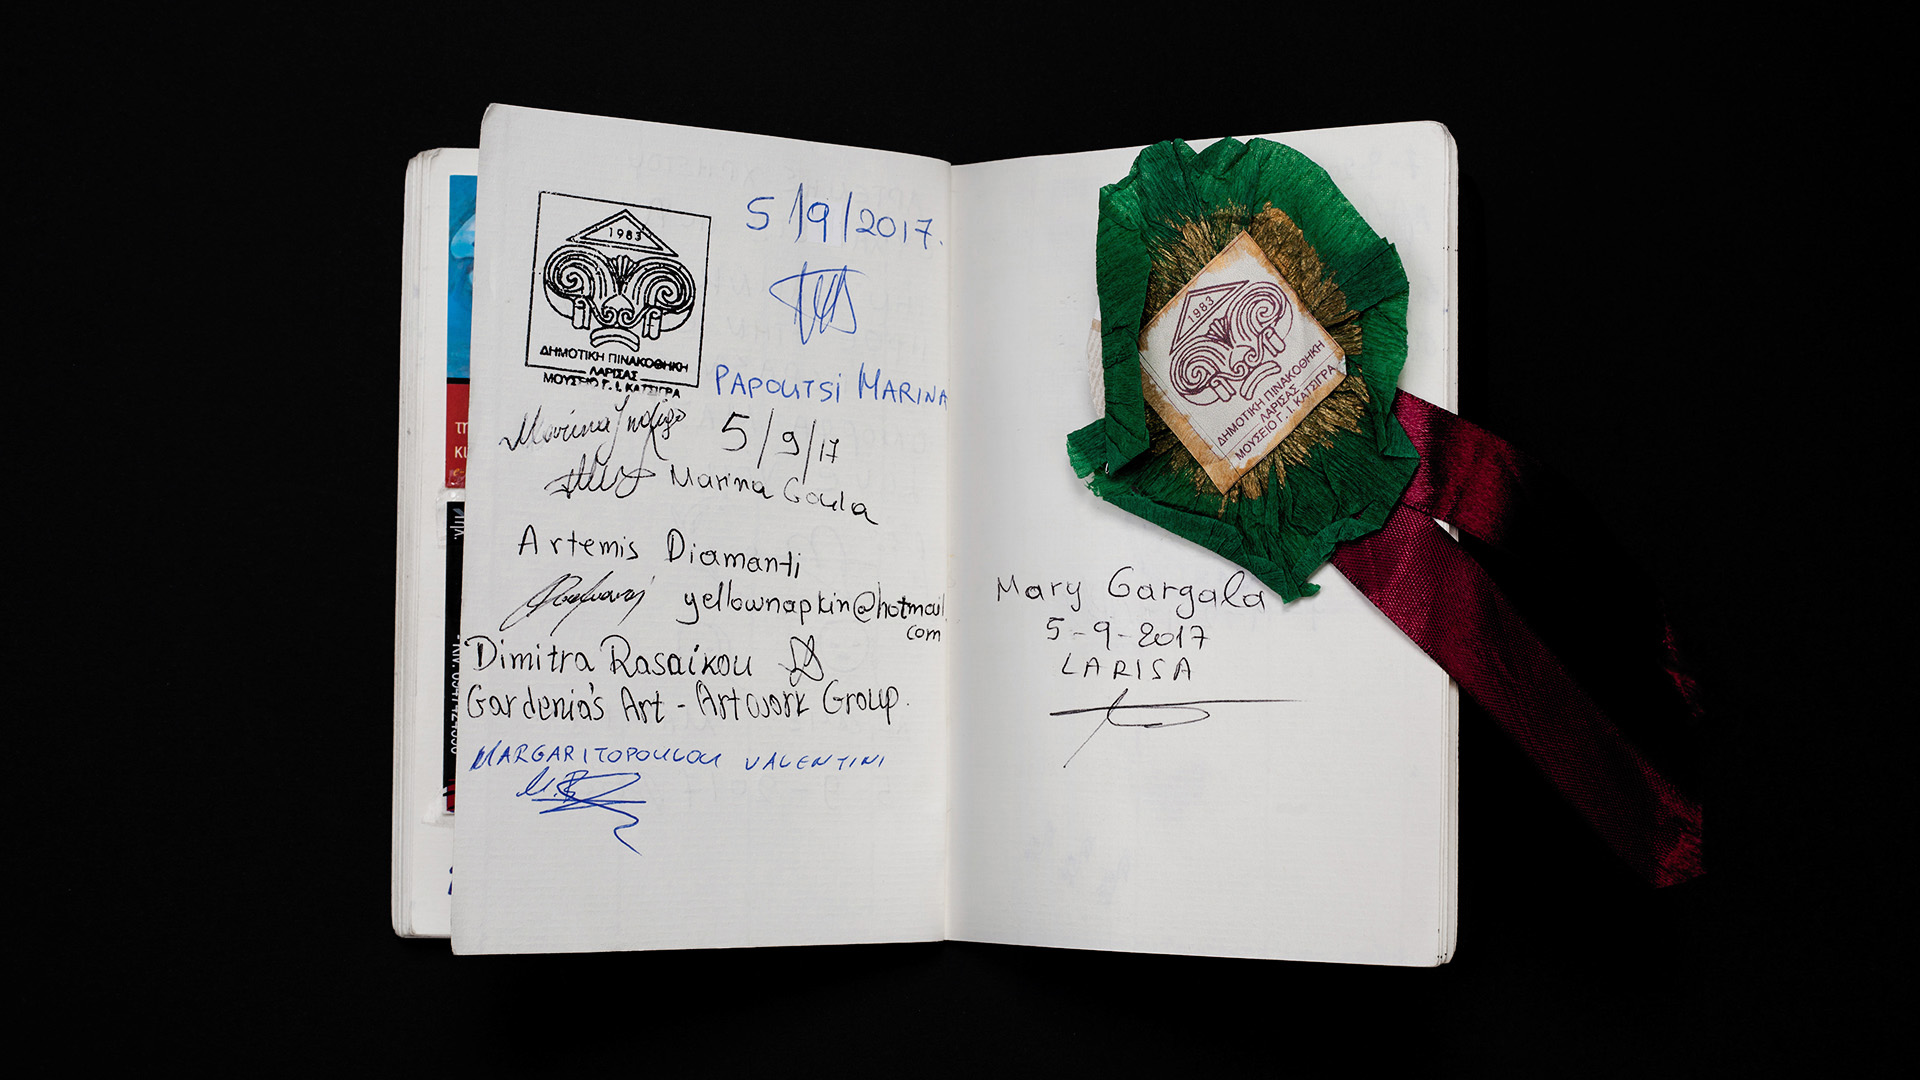 1983
ΔΗΜΟΤΙΚΗ ΠΙΝΑΚΟΘΗΚΗ
ΛΑΡΙΣΑΣ
ΜΟΥΣΕΙΟ Γ. Ι. ΚΑΤΣΙΓΡΑ
5/9/2017.
PAPOUTSI MARINA
5/9/17
Marina Goula
Artemis Diamanti
yellownapkin@hotmail.
com
Dimitra Rasaikou
Gardenia's Art - Artwork Group.
MARGARITOPOULOU VALENTINI
1983
ΔΗΜΟΤΙΚΗ ΠΙΝΑΚΟΘΗΚΗ
ΛΑΡΙΣΑΣ
ΜΟΥΣΕΙΟ Γ. Ι. ΚΑΤΣΙΓΡΑ
Mary Gargala
5-9-2017
LARISA